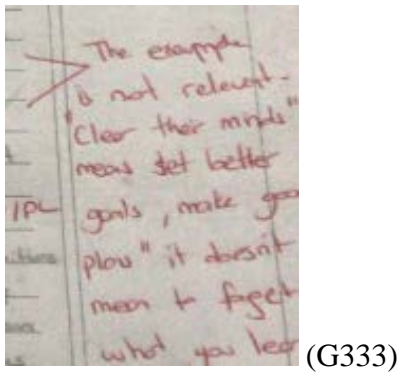 The example
is not relevent.
"Clear their minds"
means set better
IPL goals, make goo
plow" it doesn't
mean to foget
what you lear
(G333)